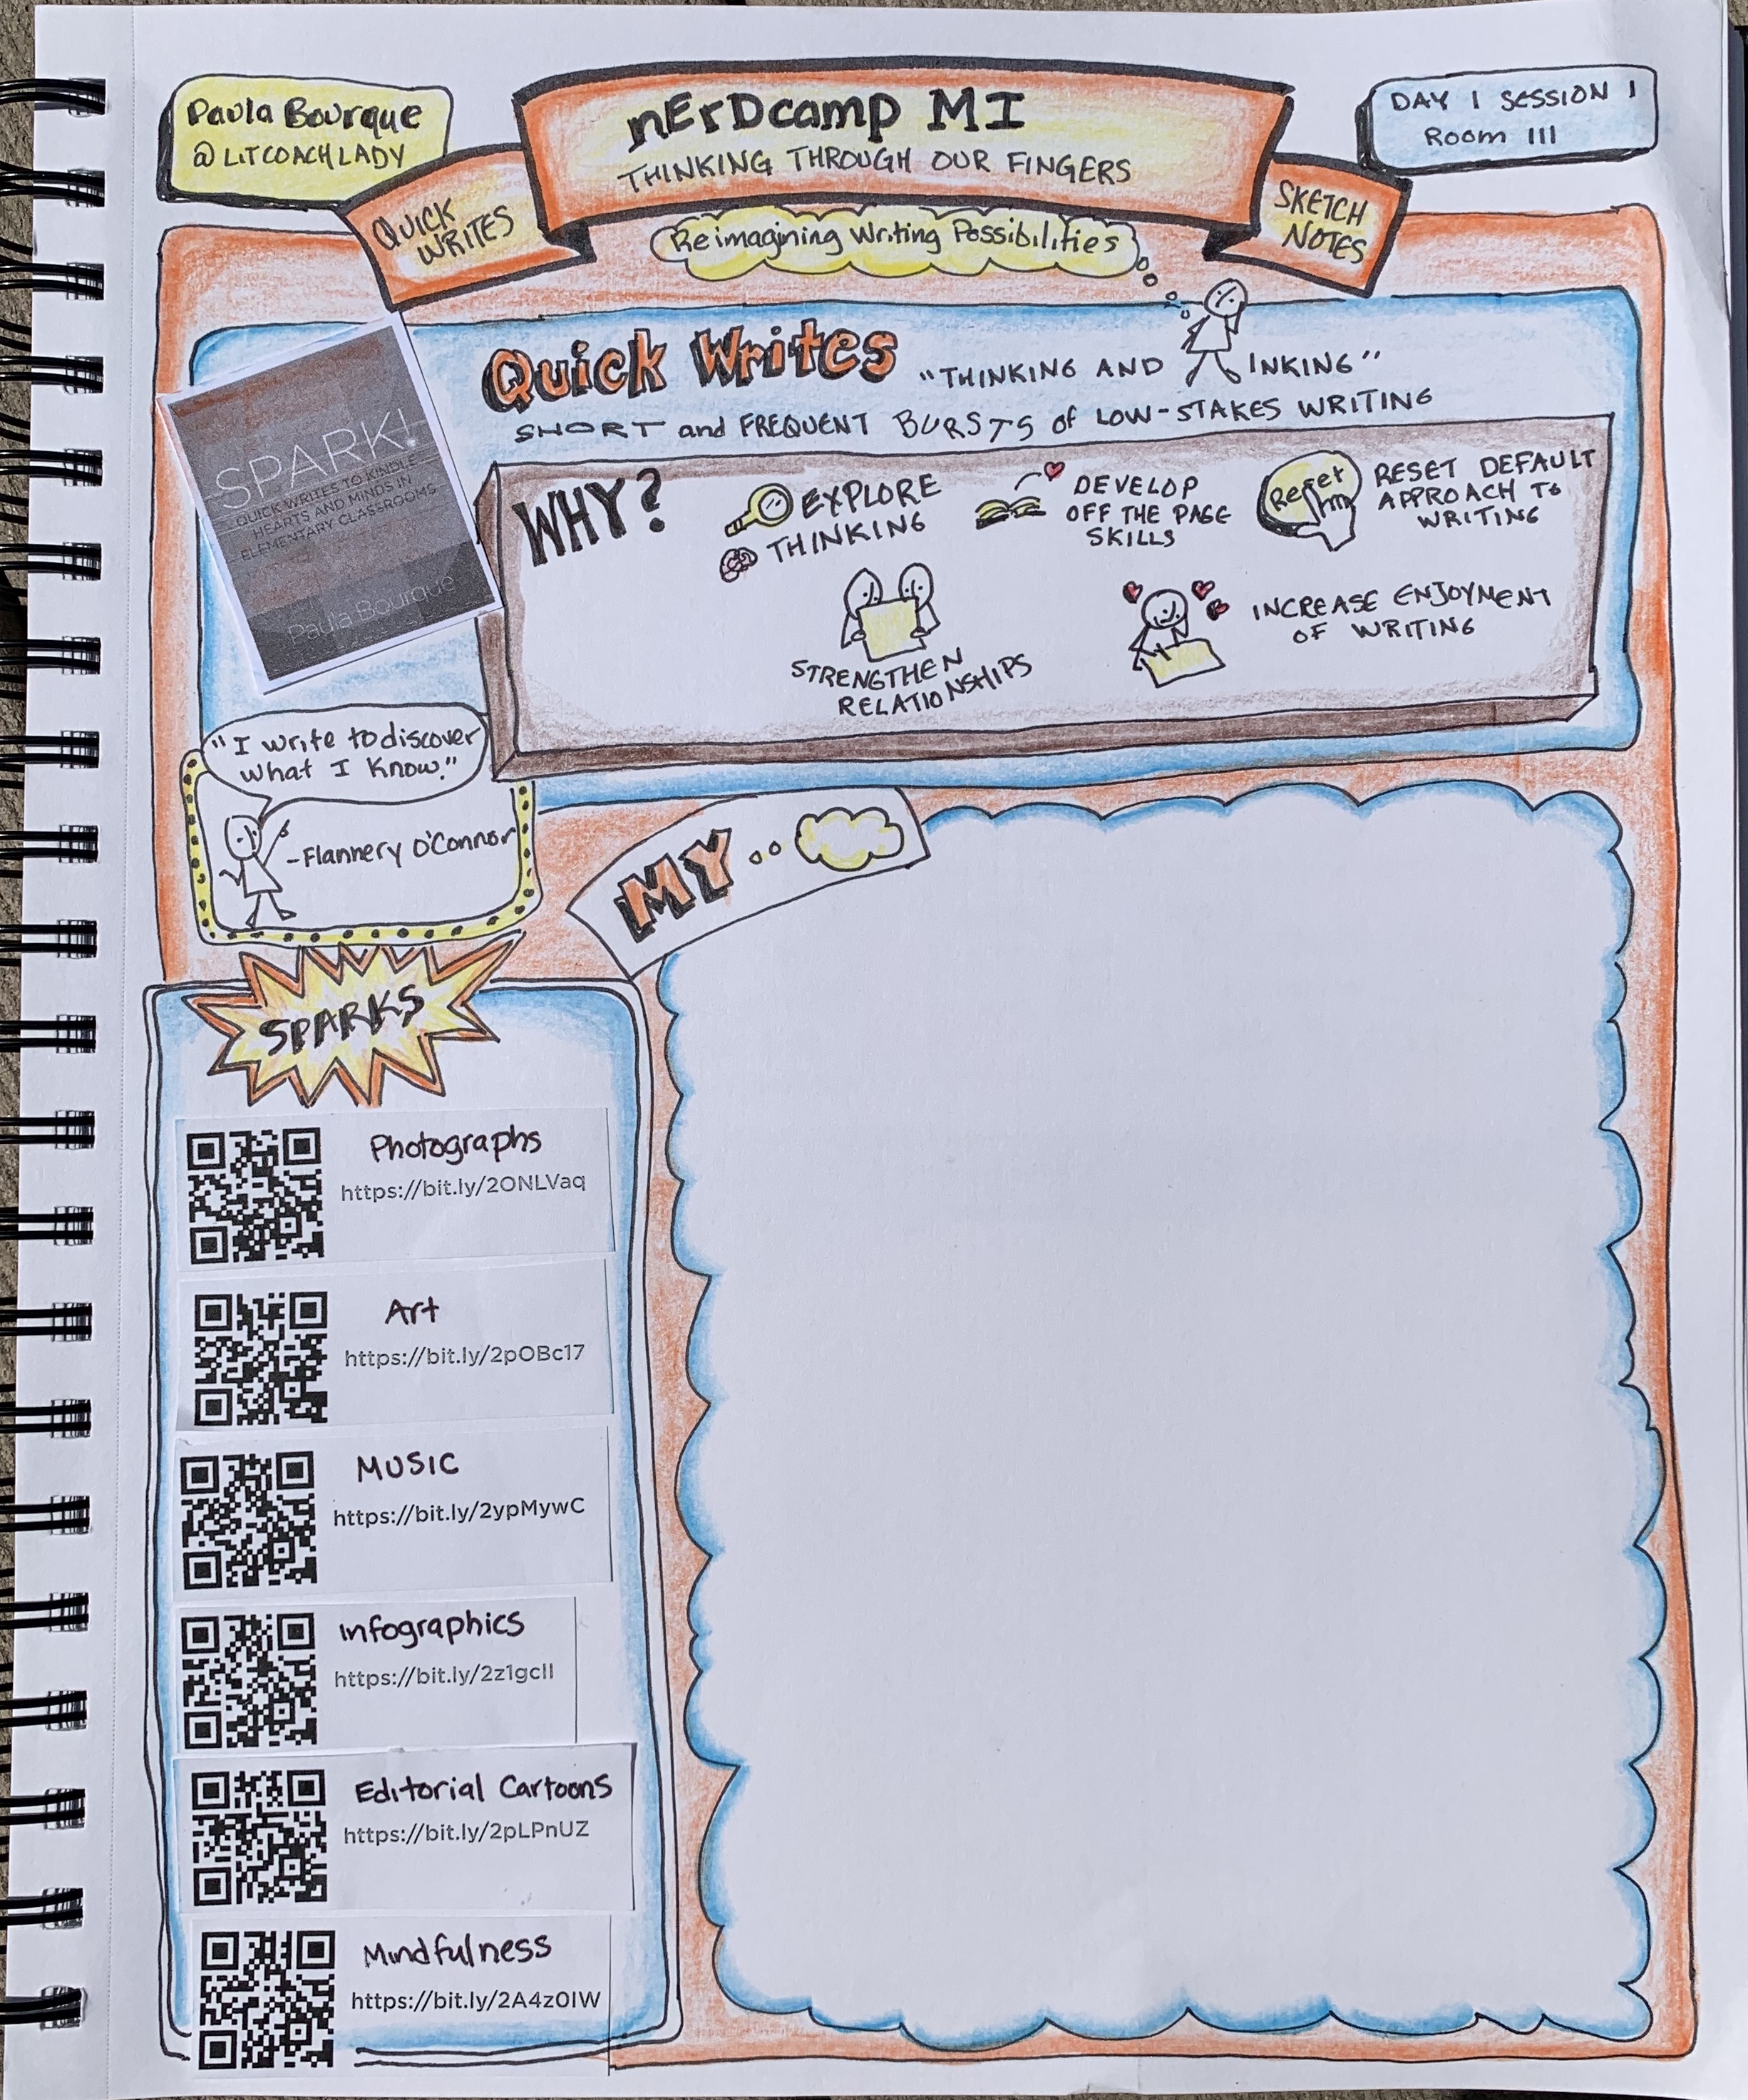 Paula Bourque
@LITCOACHLADY
nErDcamp MI
THINKING THROUGH OUR FINGERS
DAY 1 SESSION 1
Room 111
QUICK
WRITES
SKETCH
NOTES
Reimagining Writing Possibilities
Quick Writes "THINKING AND INKING"
SHORT and FREQUENT BURSTS of LOW-STAKES WRITING
SPARK!
QUICK WRITES TO KINDLE
HEARTS AND MINDS IN
ELEMENTARY CLASSROOMS
Paula Bourque
WHY?
EXPLORE
THINKING
DEVELOP
OFF THE PAGE
SKILLS
Reset
RESET DEFAULT
APPROACH TO
WRITING
STRENGTHEN
RELATIONSHIPS
INCREASE ENJOYMENT
OF WRITING
"I write to discover
what I know."
-Flannery O'Connor
MY
SPARKS
Photographs
https://bit.ly/2ONLVaq
Art
https://bit.ly/2pOBc17
MUSIC
https://bit.ly/2ypMywC
Infographics
https://bit.ly/2z1gcII
Editorial Cartoons
https://bit.ly/2pLPnUZ
Mindfulness
https://bit.ly/2A4z0IW